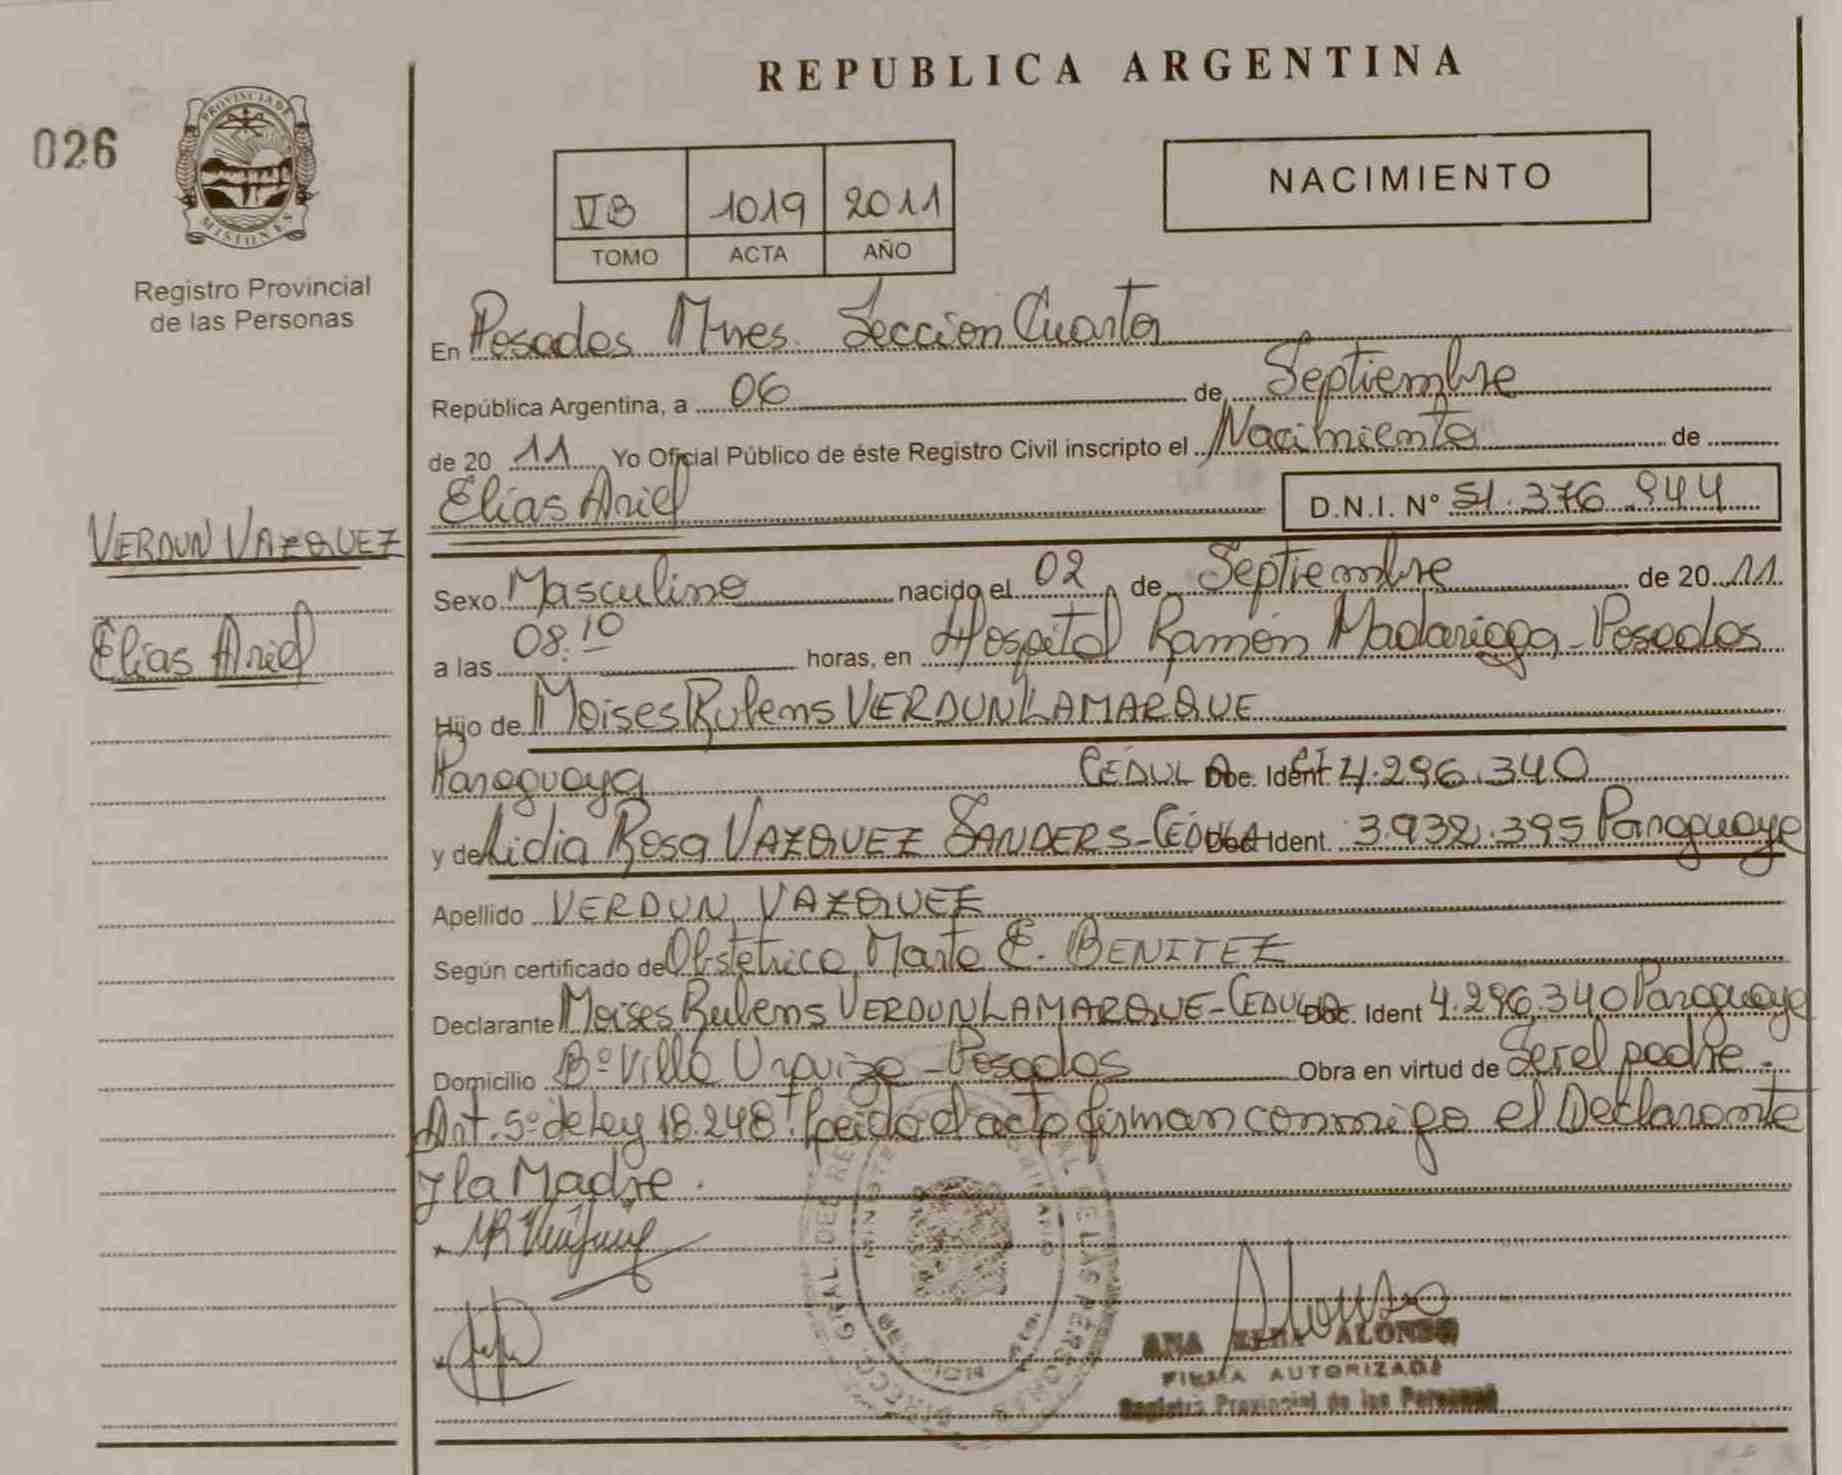 REPUBLICA ARGENTINA
026
PROVINCIA DE
MISIONES
Registro Provincial
de las Personas
VB 1019 2011
TOMO ACTA AÑO
NACIMIENTO
En Posadas Mnes. Seccion Cuarta
República Argentina, a 06 de Septiembre
de 20 11 Yo Oficial Público de éste Registro Civil inscripto el Nacimiento de
Elias Ariel D.N.I. N° 51.376.944
VERDUN VAZQUEZ
Elias Ariel
Sexo Masculino nacido el 02 de Septiembre de 20 11
a las 08.10 horas, en Hospital Ramón Madariaga - Posadas
Hijo de Moises Rubens VERDUN LAMARQUE
Paraguaya CEDULA Doc. Ident. 4.296.340
y de Lidia Rosa VAZQUEZ SANDERS - CEDULA Doc. Ident. 3.932.395 Paraguaya
Apellido VERDUN VAZQUEZ
Según certificado de Obstetrica Marta E. BENITEZ
Declarante Moises Rubens VERDUN LAMARQUE - CEDULA Doc. Ident 4.296.340 Paraguaya
Domicilio Bº Villa Urquiza - Posadas Obra en virtud de Ser el padre.
Art. 5º de Ley 18.248. Leido el acta firman conmigo el Declarante
y la Madre.
Alonso
ANA ALONSO
FIRMA AUTORIZADA
Registro Provincial de las Personas